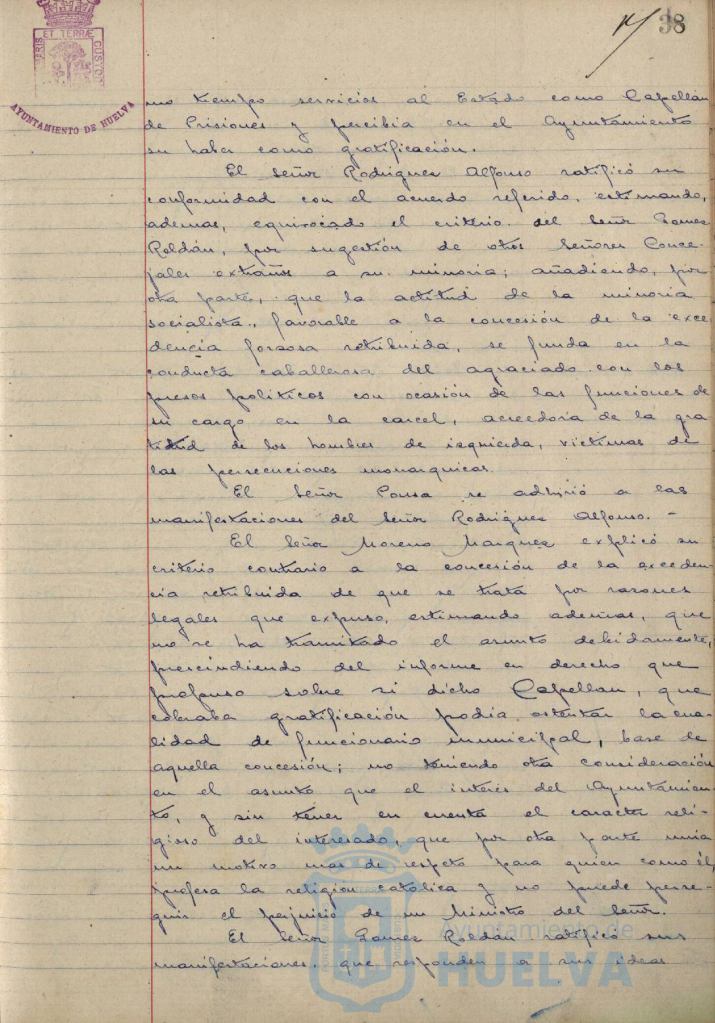 38
ET TERRÆ
CUSTOD
AYUNTAMIENTO DE HUELVA
mo tiempo servicios al Estado como Capellan
de Prisiones y percibia en el Ayuntamiento
su haber como gratificación.
El Señor Rodriguez Alfonso ratificó su
conformidad con el acuerdo referido, estimando,
ademas, equivocado el criterio del Señor Gomez
Roldán, por sugestión de otros Señores Conce-
jales extraños a su minoria; añadiendo, por
otra parte, que la actitud de la minoria
socialista, favorable a la concesión de la exce-
dencia forzosa retribuida, se funda en la
conducta caballerosa del agraciado con los
presos politicos con ocasión de las funciones de
su cargo en la carcel, acreedoria de la gra
titud de los hombres de izquierda, victimas de
las persecuciones monarquicas.
El Señor Ponsa se adhirió a las
manifestaciones del Señor Rodriguez Alfonso. -
El Señor Moreno Marquez explicó su
criterio contrario a la concesión de la exceden-
cia retribuida de que se trata por razones
legales que expuso, estimando ademas, que
no se ha tramitado el asunto debidamente,
prescindiendo del informe en derecho que
propuso sobre si dicho Capellan, que
cobraba gratificación podia ostentar la cua-
lidad de funcionario municipal, base de
aquella concesión; no teniendo otra consideración
en el asunto que el interés del Ayuntamien-
to, y sin tener en cuenta el caracter reli-
gioso del interesado, que por otra parte unia
un motivo mas de respeto para quien como él,
profesa la religion católica y no puede perse-
guir el perjuicio de un Ministro del Señor.
El Señor Gomez Roldán ratificó sus
manifestaciones que responden a sus ideas
Ayuntamiento de
HUELVA